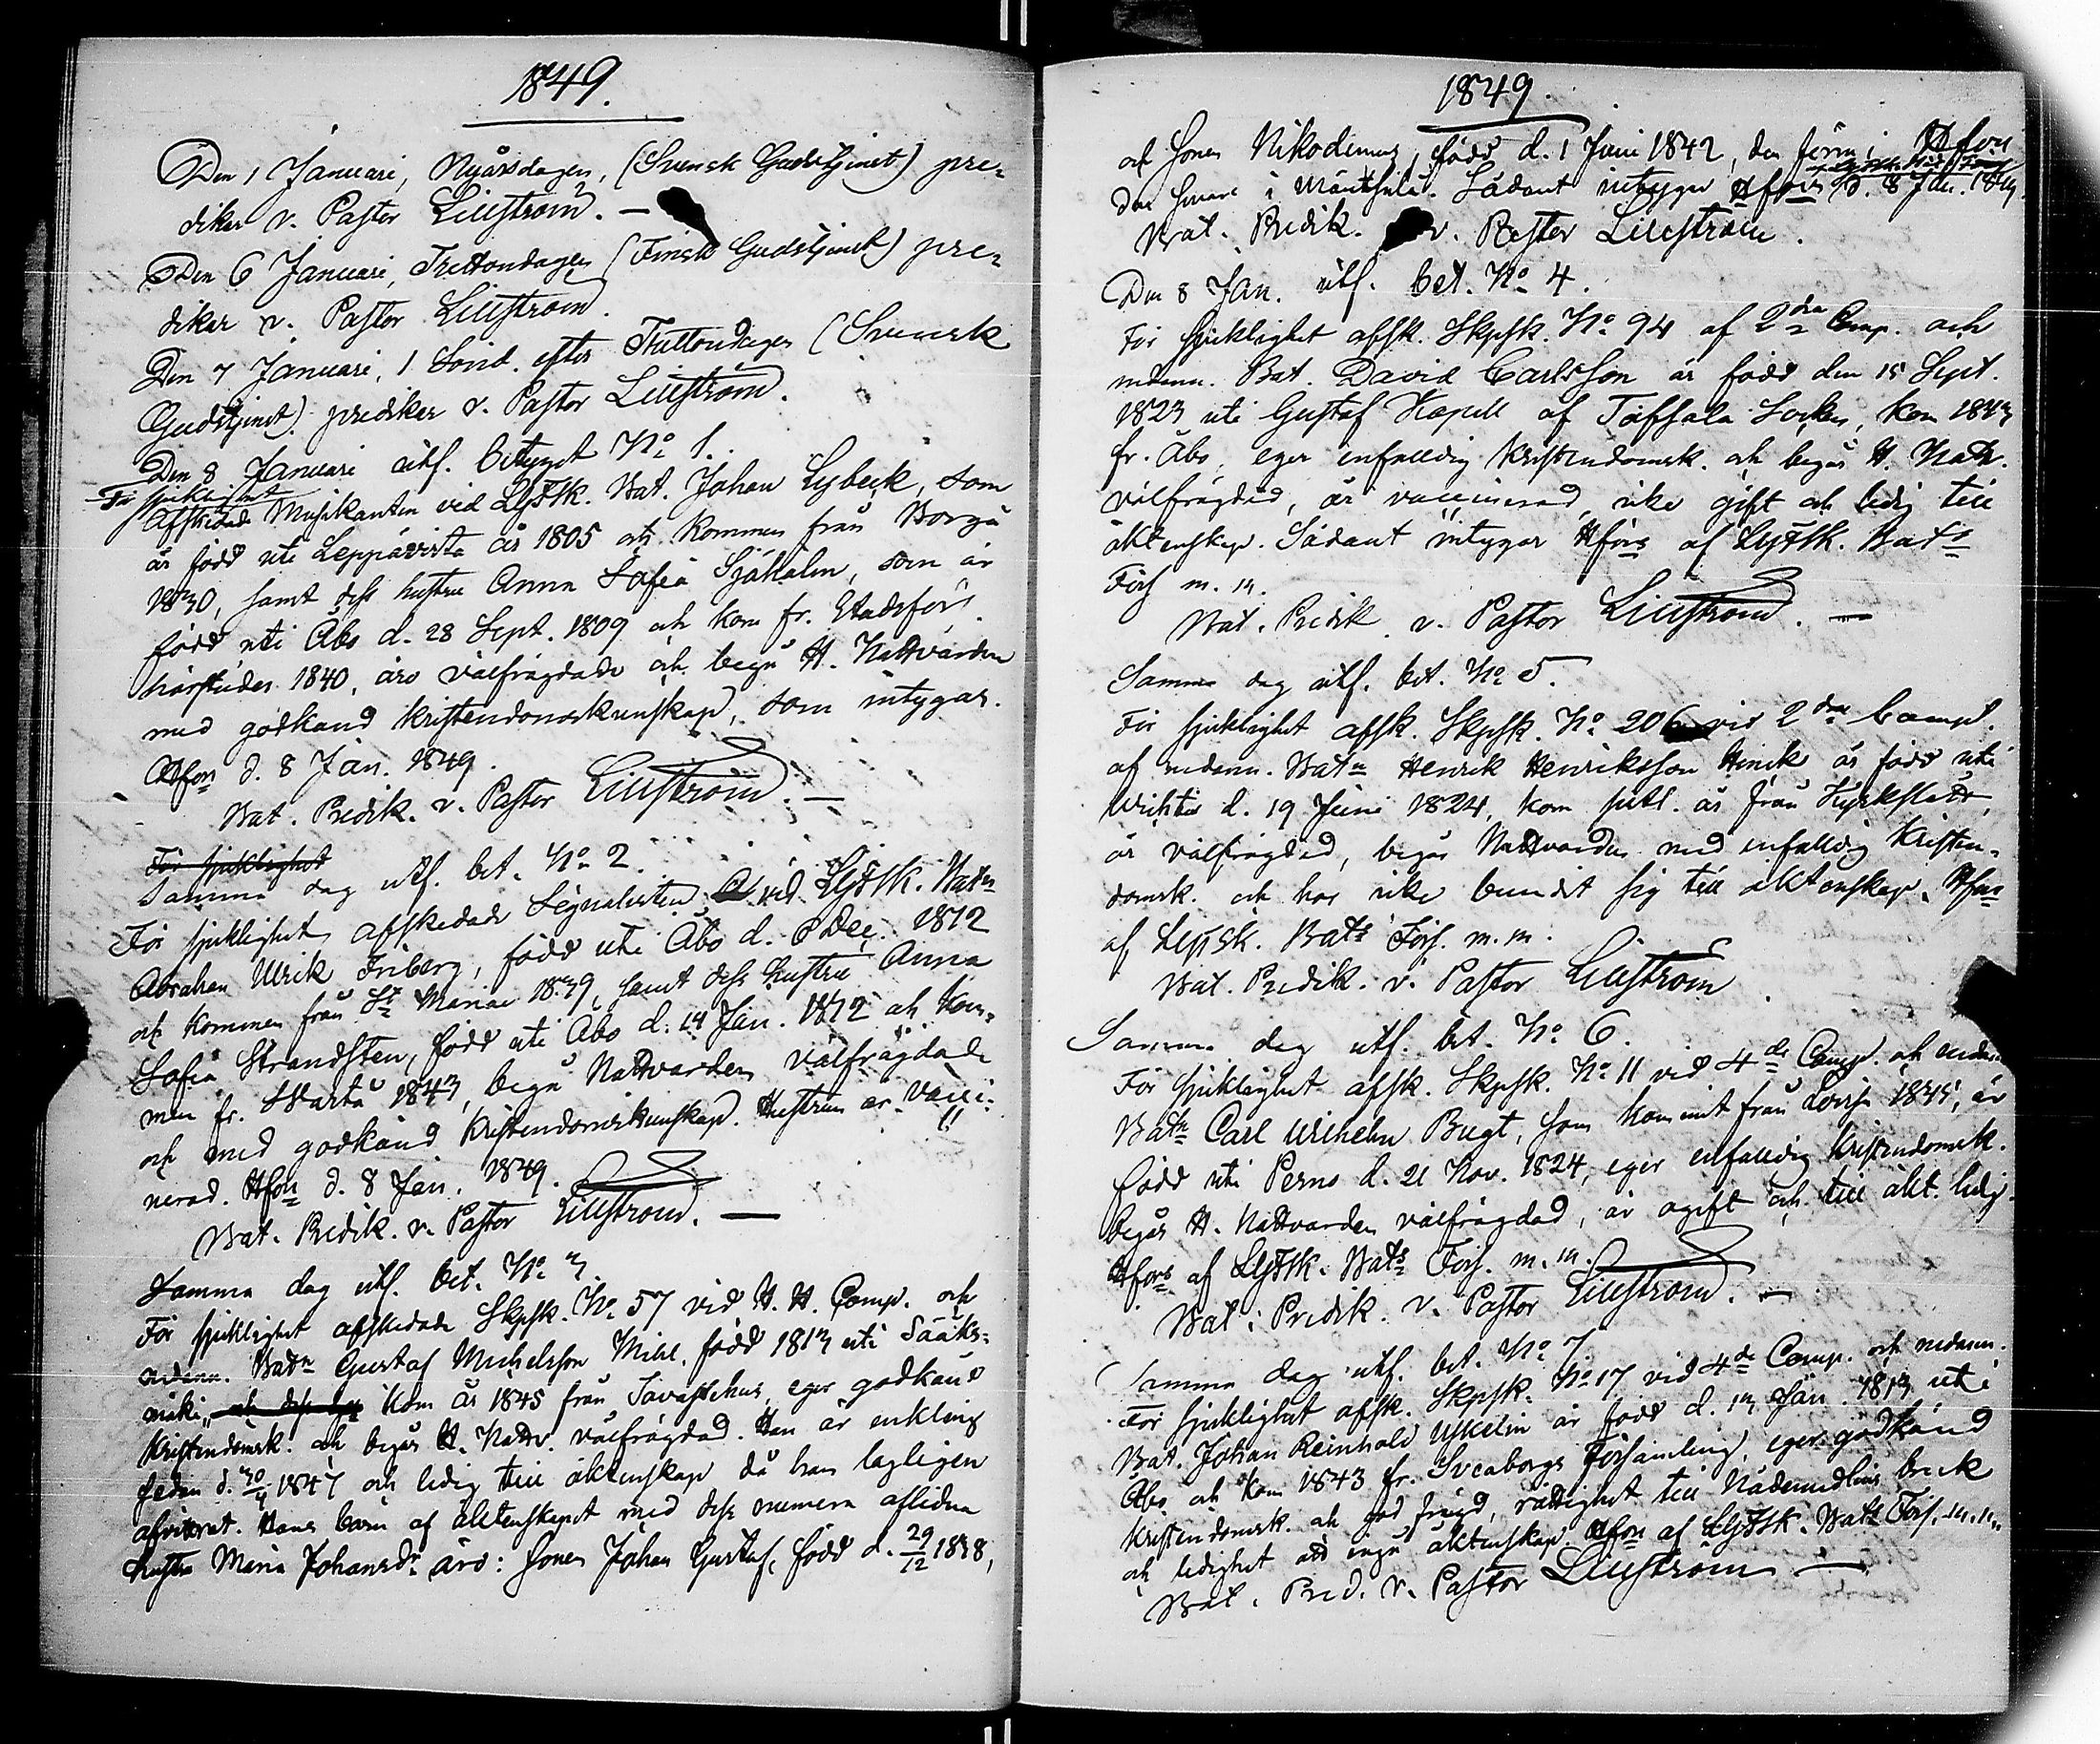 1849.
Den 1 Januari, Nyårsdagen, (Svensk Gudstjenst) pre-
dikar v. Pastor Liliström. —
Den 6 Januari, Trettondagen (Finsk Gudstjenst) pre-
dikar v. Pastor Liliström.
Den 7 Januari, 1 Sönd. efter Trettondagen (Svensk
Gudstjenst) predikar v. Pastor Liliström.
Den 8 Januari utf. betyget No 1.
För sjuklighet
Afskedade Musikanten vid LgFSk. Bat. Johan Lybeck, som
är född uti Leppävirta år 1805 och kommen från Borgå
1830, samt dess hustru Anna Sofia Sjöholm, som är
född uti Åbo d. 28 Sept. 1809 och kom fr. Stadsförs.
härstädes 1840, äro välfrägdade och begå H. Nattvarden
med godkänd kristendomskunskap, som intygar.
Hfors d. 8 Jan. 1849.
Bat. Predik. v. Pastor Liliström. —
För sjuklighet
Samma dag utf. bet. No 2.
För sjuklighet afskedade Signalisten vid LgFSk. Batn
Abraham Ulrik Friberg, född uti Åbo d. 6 Dec. 1812
och kommen från St Mariae 1839, samt dess hustru Anna
Sofia Strandsten, född uti Åbo d. 14 Jan. 1812 och kom-
men fr. 1843, begå Nattvarden välfrägdade
och med godkänd kristendomskunskap. Hustrun är vacci-
nerad. Hfors d. 8 Jan. 1849.
Bat. Predik. v. Pastor Liliström. —
Samma dag utf. bet. No 3
För sjuklighet afskedade Skpsk. No 57 vid H. H. Comp. och
nedann. Batn Gustaf Michelsson Mihl, född 1813 uti Sääks-
mäki, kom år 1845 från Tavastehus, eger godkänd
kristendomsk. och begår H. Nattv. välfrägdad. Han är enkling
sedan d. 30/4 1847 och ledig till äktenskap då han lagligen
afvittrat. Hans barn af äktenskapet med dess numera aflidna
hustru Maria Johansdr äro: sonen Johan Gustaf, född d. 29/12 1838,
1849.
och sonen Nikodemus, född d. 1 Juni 1842, den förra i Hfors
den senare i Mäntsälä. Sådant intygar Hfors d. 8 Jan. 1849.
Bat. Predik. v. Pastor Liliström.
Den 8 Jan. utf. bet. No 4.
För sjuklighet afsk. Skpsk. No 94 af 2dra Comp. och
nedann. Bat. David Carlsson är född den 15 Sept.
1823 uti Gustaf Kapell af Töfsala Socken, kom 1843
fr. Åbo, eger enfaldig kristendomsk. och begår H. Nattv.
välfrägdad, är vaccinerad, icke gift och ledig till
äktenskap. Sådant intygar Hfors af LgFSk. Bats
Förs m. m.
Bat. Predik. v. Pastor Liliström. —
Samma dag utf. bet. No 5.
För sjuklighet afsk. Skpsk. No 206 vid 2dra Comp.
af nedann. Batn Henrik Henriksson Hinik är född uti
Wichtis d. 19 Juni 1824, kom sistl. år från Kyrkslätt,
är välfrägdad, begår Nattvarden med enfaldig kristen-
domsk. och har icke bundit sig till äktenskap. Hfors
af LgFSk. Bats Förs. m. m.
Bat. Predik. v. Pastor Liliström.
Samma dag utf. bet. No 6.
För sjuklighet afsk. Skpsk. No 11 vid 4de Comp. och nedann
Batn Carl Wilhelm Bugt, som kommit från Lovisa 1845, är
född uti Perno d. 21 Nov. 1824, eger enfaldig kristendomsk.
begår H. Nattvarden välfrägdad, är ogift och till äkt. ledig.
Hfors af LgFSk. Bats Förs. m. m.
Bat. Predik. v. Pastor Liliström. —
Samma dag utf. bet. No 7.
För sjuklighet afsk. Skpsk. No 17 vid 4de Comp. och nedann.
Bat. Johan Reinhold är född d. 13 Jan. 1813 uti
Åbo och kom 1843 fr. Sveaborgs Församling, eger godkänd
kristendomsk. och god frejd, rättighet till Nådemedlens bruk
och ledighet att ingå äktenskap. Hfors af LgFSk. Bats Förs. m. m.
Bat. Pred. v. Pastor Liliström —